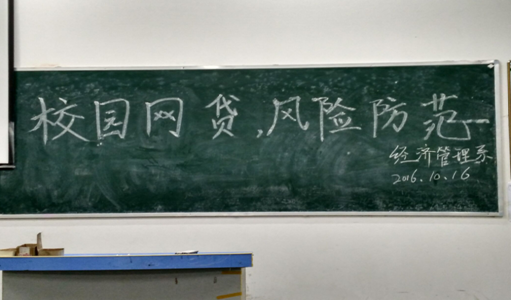 校园网贷,风险防范
经济管理系
2016.10.16